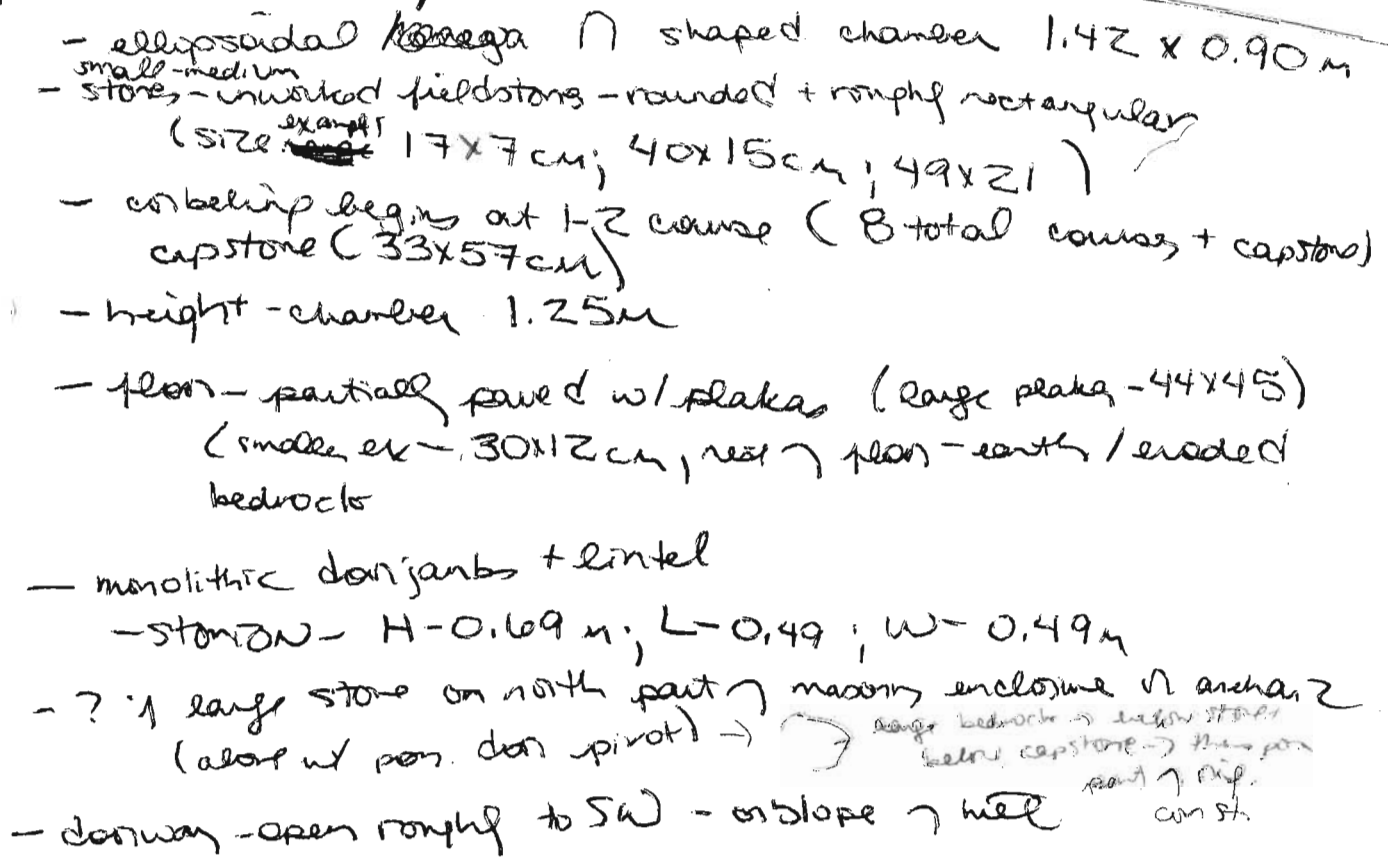 - ellipsoidal ∩ shaped chamber 1.42 x 0.90 m
small-medium
- stones - unworked fieldstones - rounded + roughly rectangular
(size examples 17x7cm; 40x15cm; 49x21)
- corbeling begins at 1-2 course (8 total courses + capstone)
capstone (33x57cm)
- height - chamber 1.25m
- floor - partially paved w/ plakas (large plaka - 44x45)
(smaller ex - 30x12cm, rest of floor - earth / eroded
bedrock
- monolithic door jambs + lintel
- H - 0.69 m; L - 0.49; W - 0.49m
- ? if large stone on north part of masonry enclosure is archai?
(along w/ poss. door pivot) →
large bedrock stones
below capstone → poss
part of orig.
const.
- doorway - open roughly to SW - on slope of hill